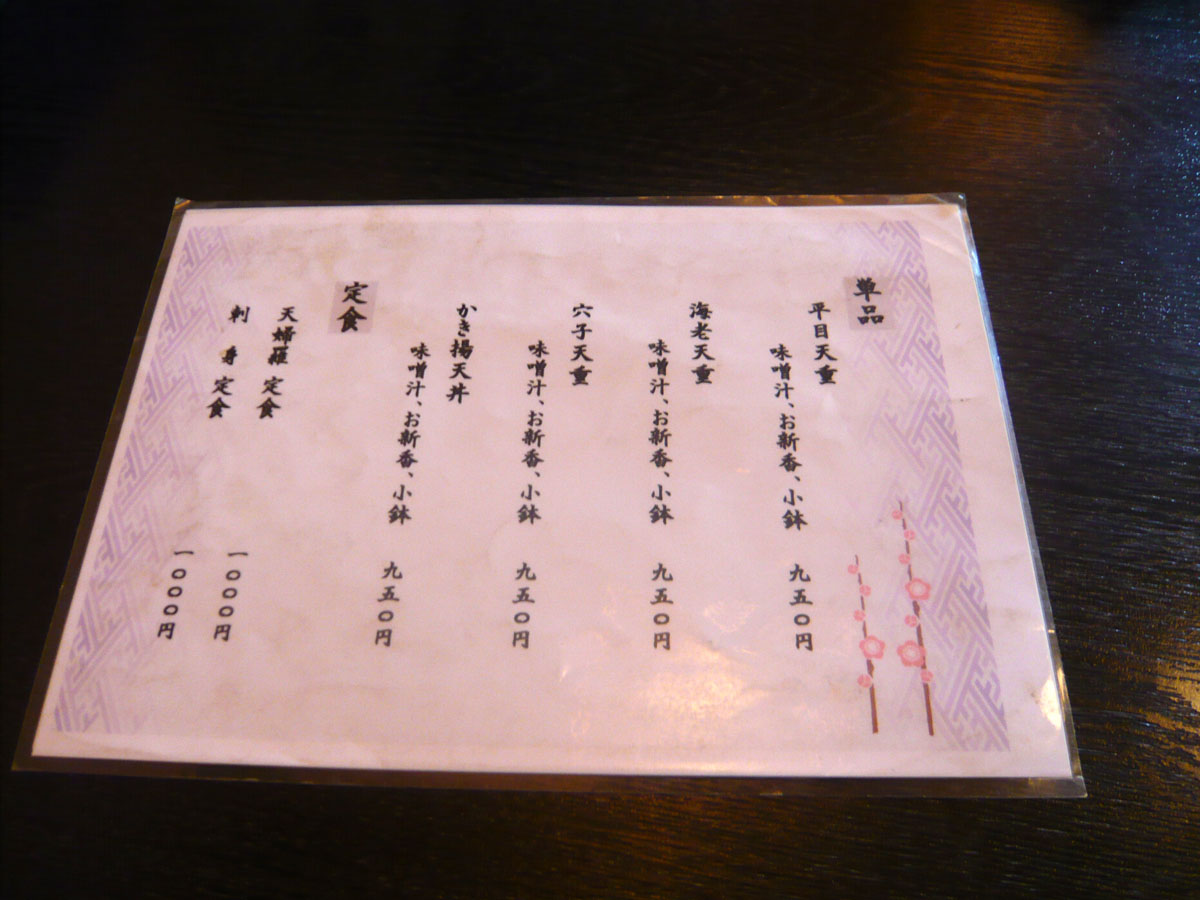 単品
平目天重
味噌汁、お新香、小鉢 九五〇円
海老天重
味噌汁、お新香、小鉢 九五〇円
穴子天重
味噌汁、お新香、小鉢 九五〇円
かき揚天丼
味噌汁、お新香、小鉢 九五〇円
定食
天婦羅 定食 一〇〇〇円
刺身 定食 一〇〇〇円